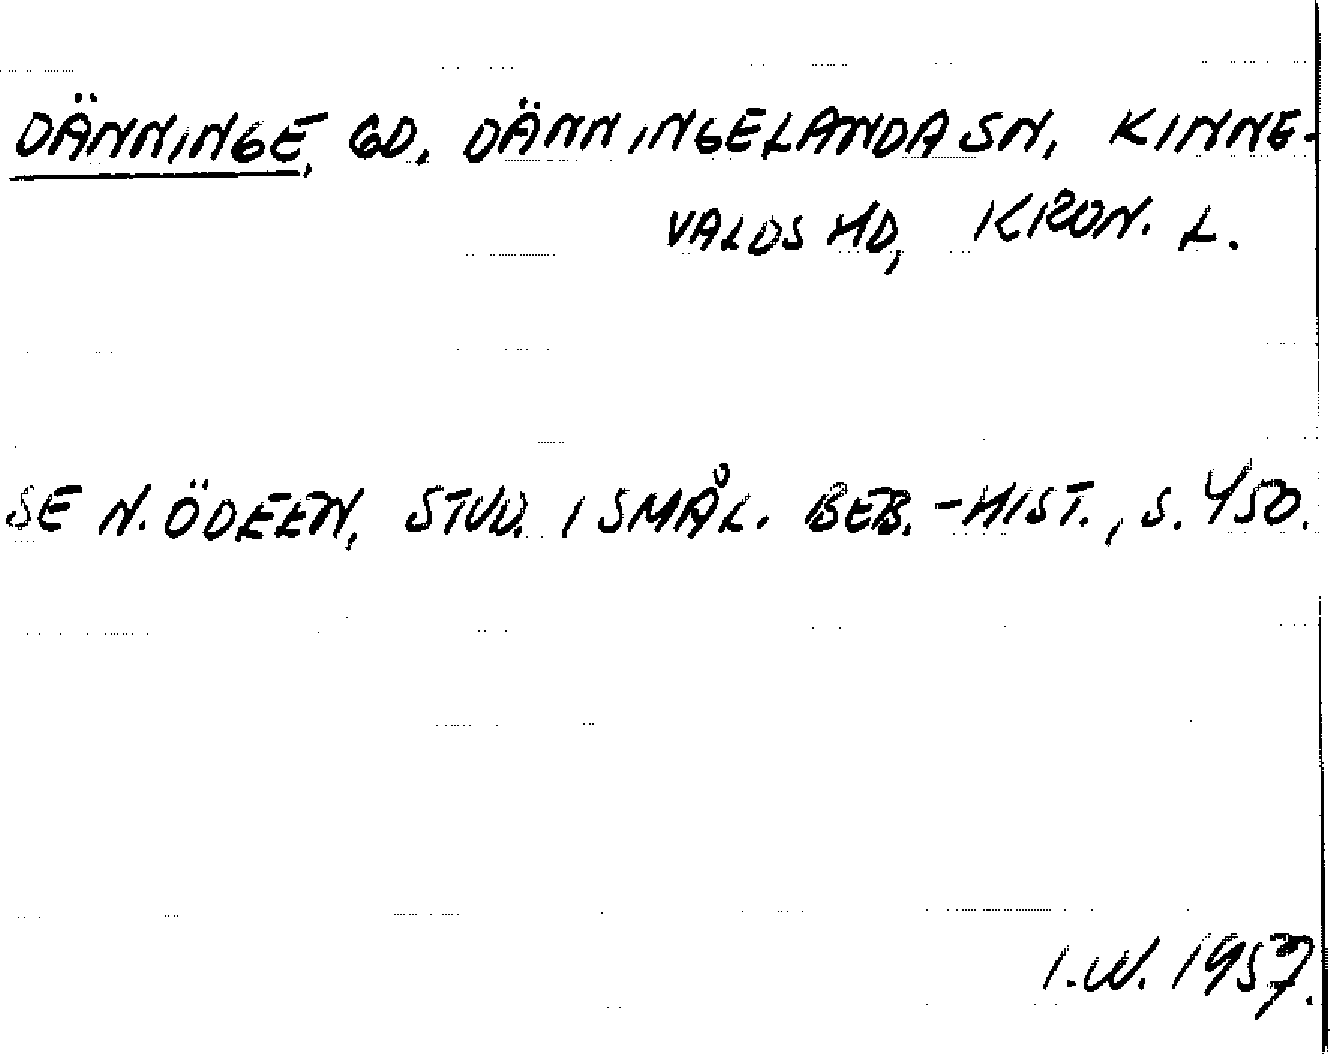 DÄNNINGE, GD. DÄNNINGELANDA SN, KINNE-
VALDS HD, KRON. L.
SE N. ÖDEEN, STUD. I SMÅL. BEB.-HIST., S. 450.
I.W. 1957.